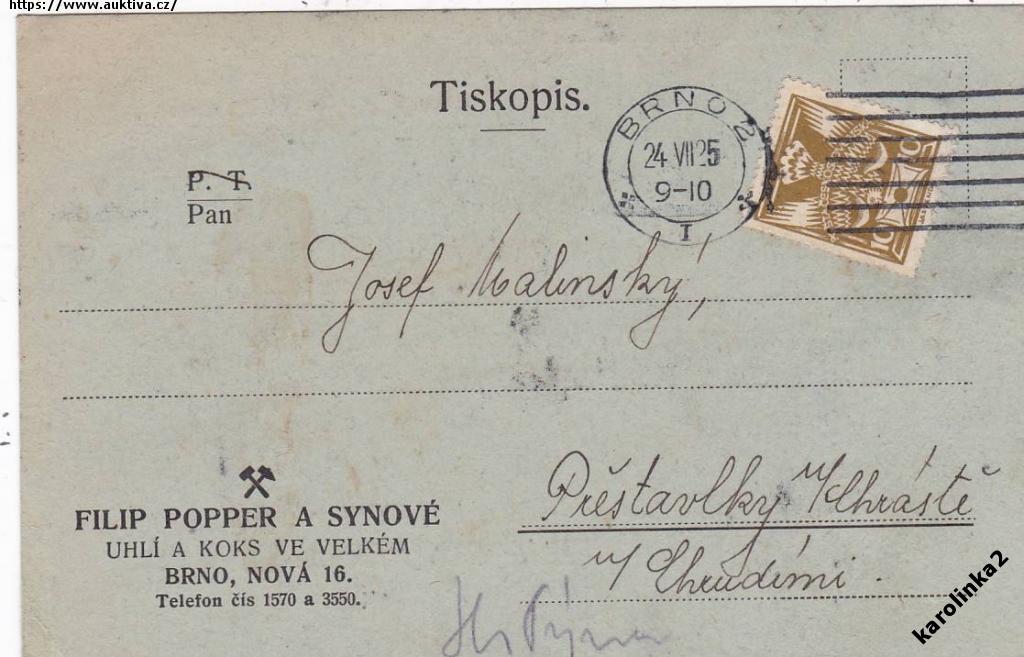 https://www.auktiva.cz/
Tiskopis.
BRNO 2
24 VII 25
9-10
I
10
10
P. T.
Pan
Josef Malinský,
FILIP POPPER A SYNOVÉ
UHLÍ A KOKS VE VELKÉM
BRNO, NOVÁ 16.
Telefon čís 1570 a 3550.
Přestavlky u/Chrástě
u/ Chrudimi.
karolinka2